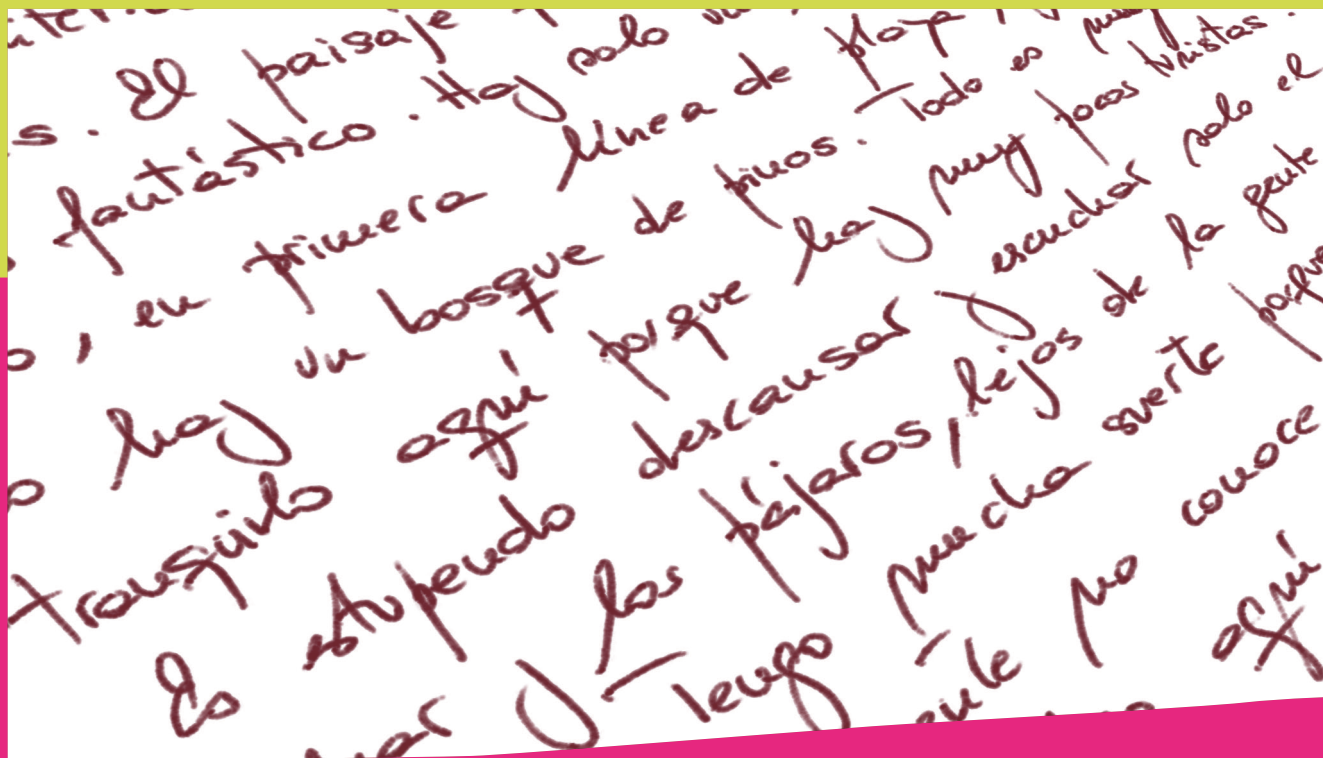 s. El paisaje
fantástico. Hay solo un
o, en primera línea de playa y
o hay un bosque de pinos. Todo es muy
tranquilo aquí porque hay muy pocos turistas.
Es estupendo descansar y escuchar solo el
mar y los pájaros, lejos de la gente
Tengo mucha suerte porque
ente no conoce
aquí